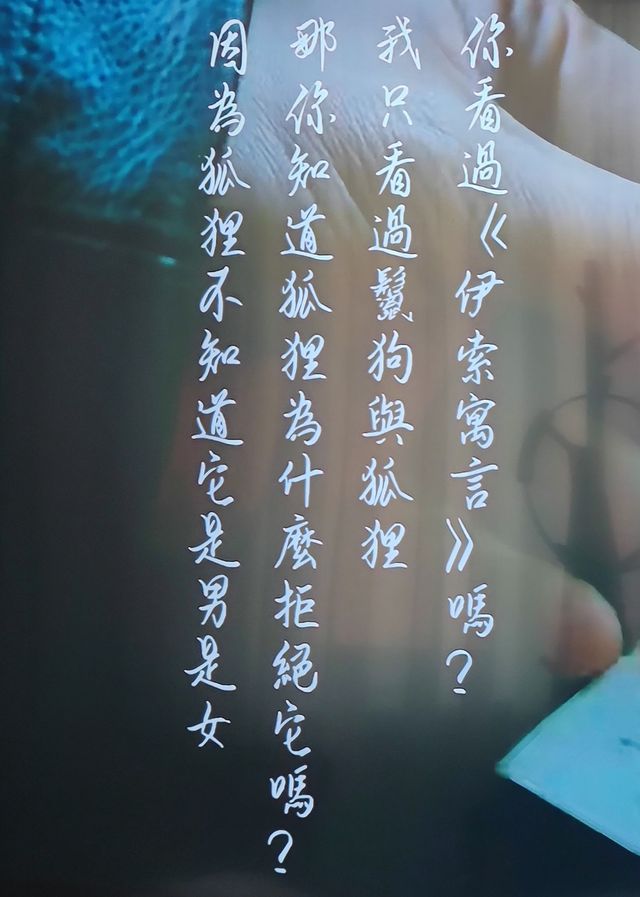 你看過《伊索寓言》嗎？
我只看過鬣狗與狐狸
那你知道狐狸為什麼拒絕它嗎？
因為狐狸不知道它是男是女